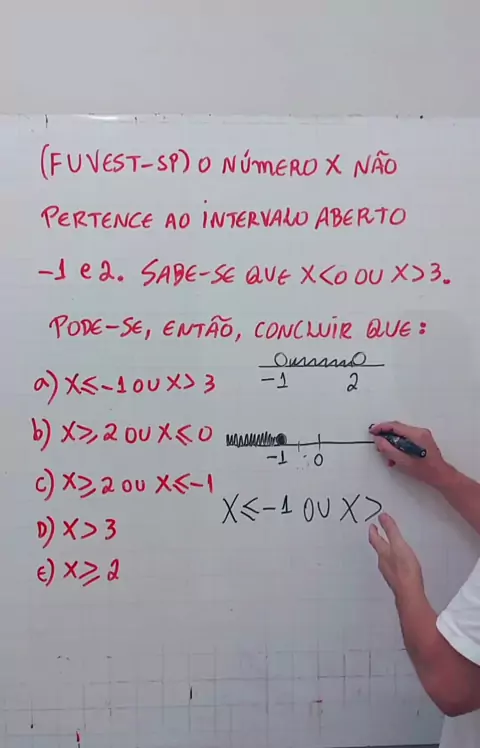 (FUVEST-SP) O NÚMERO X NÃO
PERTENCE AO INTERVALO ABERTO
-1 e 2. SABE-SE QUE X<0 OU X>3.
PODE-SE, ENTÃO, CONCLUIR QUE:
a) X≤-1 OU X>3
-1 2
b) X≥2 OU X≤0
-1 0
c) X≥2 OU X≤-1
X≤-1 OU X>
D) X>3
e) X≥2